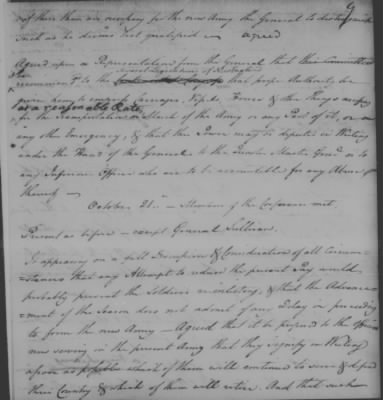 of them than are necessary for the new Army the General to discriminate
such as he deems best qualified — agreed
Agreed upon a Representation from the General that this Committee
recommend to the several Legislatures of that proper Authority be
given him to impress Carriages, Vessels, Horses & other Things necessary
at a reasonable Rate
for the Transportation or March of the Army or any Part of it, or on
any other Emergency, & that this Power may be deputed in Writing
under the Hand of the General to the Quarter Master Genl or to
any Inferior Officer who are to be accountable for any Abuse
thereof —
October 21st — Members of the Conference met
Present as before — except General Sullivan
It appearing on a full Discussion & Consideration of all Circum-
stances that any Attempt to reduce the present Pay would
probably prevent the Soldiers reinlisting, & that the Advance-
ment of the Season does not admit of any Delay in proceeding
to form the new Army — Agreed that it be proposed to the Officers
now serving in the present Army that they signify in Writing
as soon as possible which of them will continue to serve & defend
their Country & which of them will retire. And that such